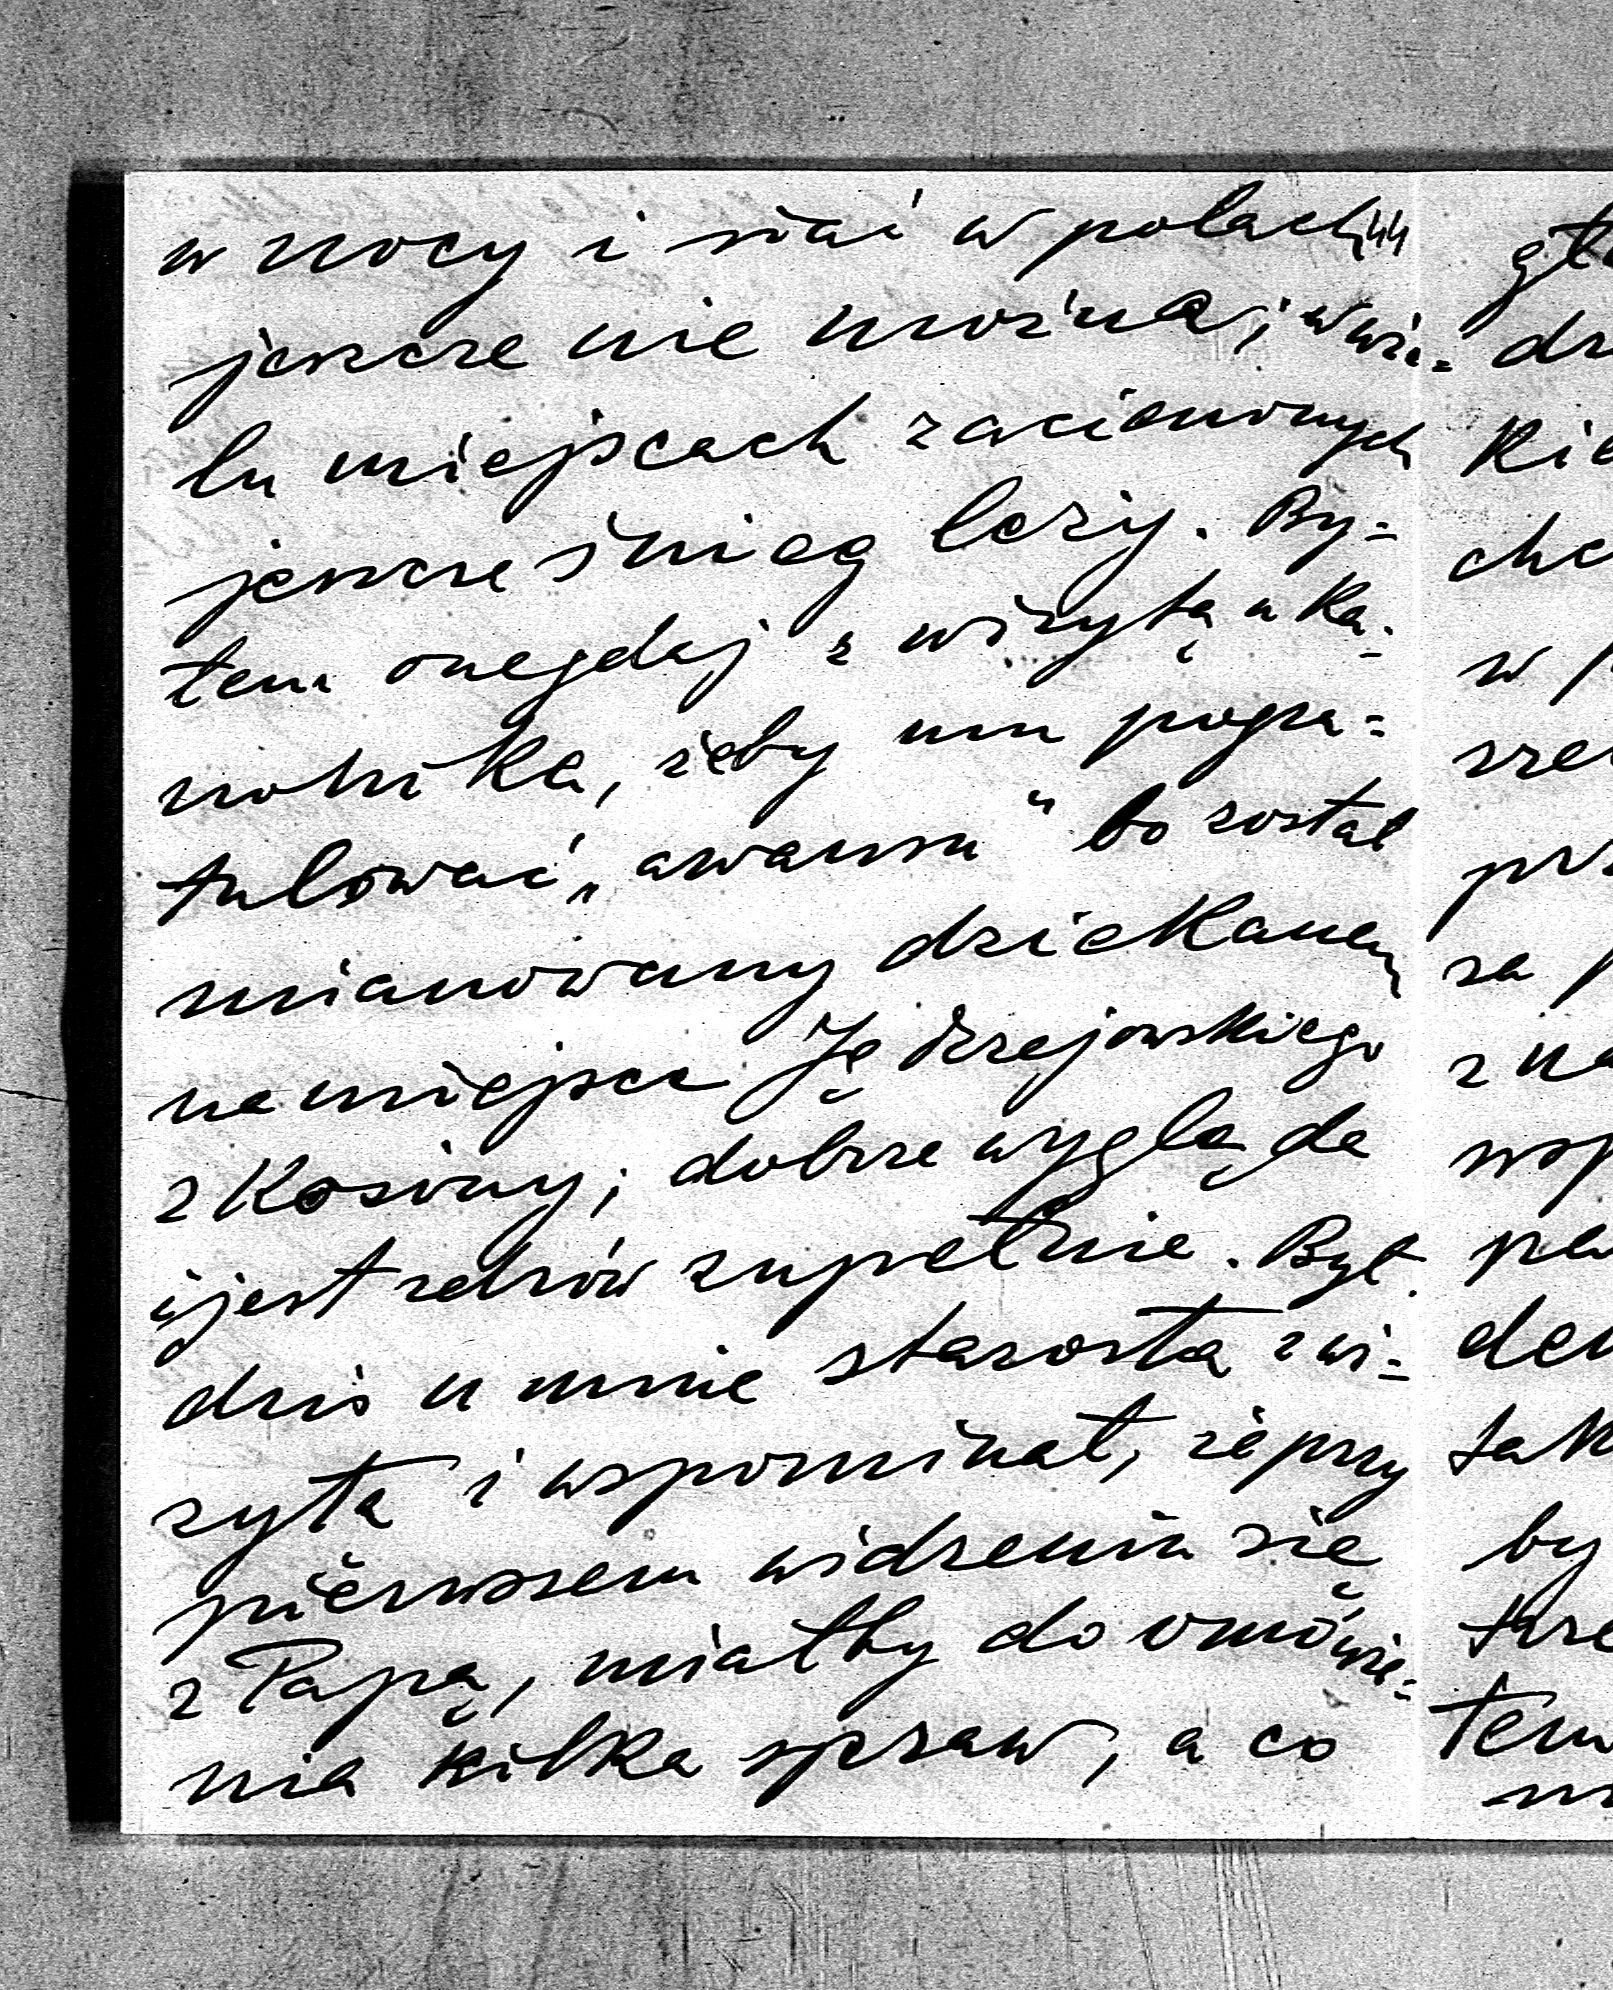 w nocy i siać w polach 44
jeszcze nie można; w wie-
lu miejscach zacienionych
jeszcze śnieg leży. By-
łem onegdaj z wizytą u Ka-
nonika, żeby mu pogra-
tulować „awansu" bo został
mianowany dziekanem
na miejsce Jędrzejowskiego
z Kosiny; dobrze wygląda
i jest zdrów zupełnie. Był
dziś u mnie starosta z wi-
zytą i wspominał, że przy
pierwszem widzeniu się
z Papą, miałby do omówie-
nia kilka spraw, a co